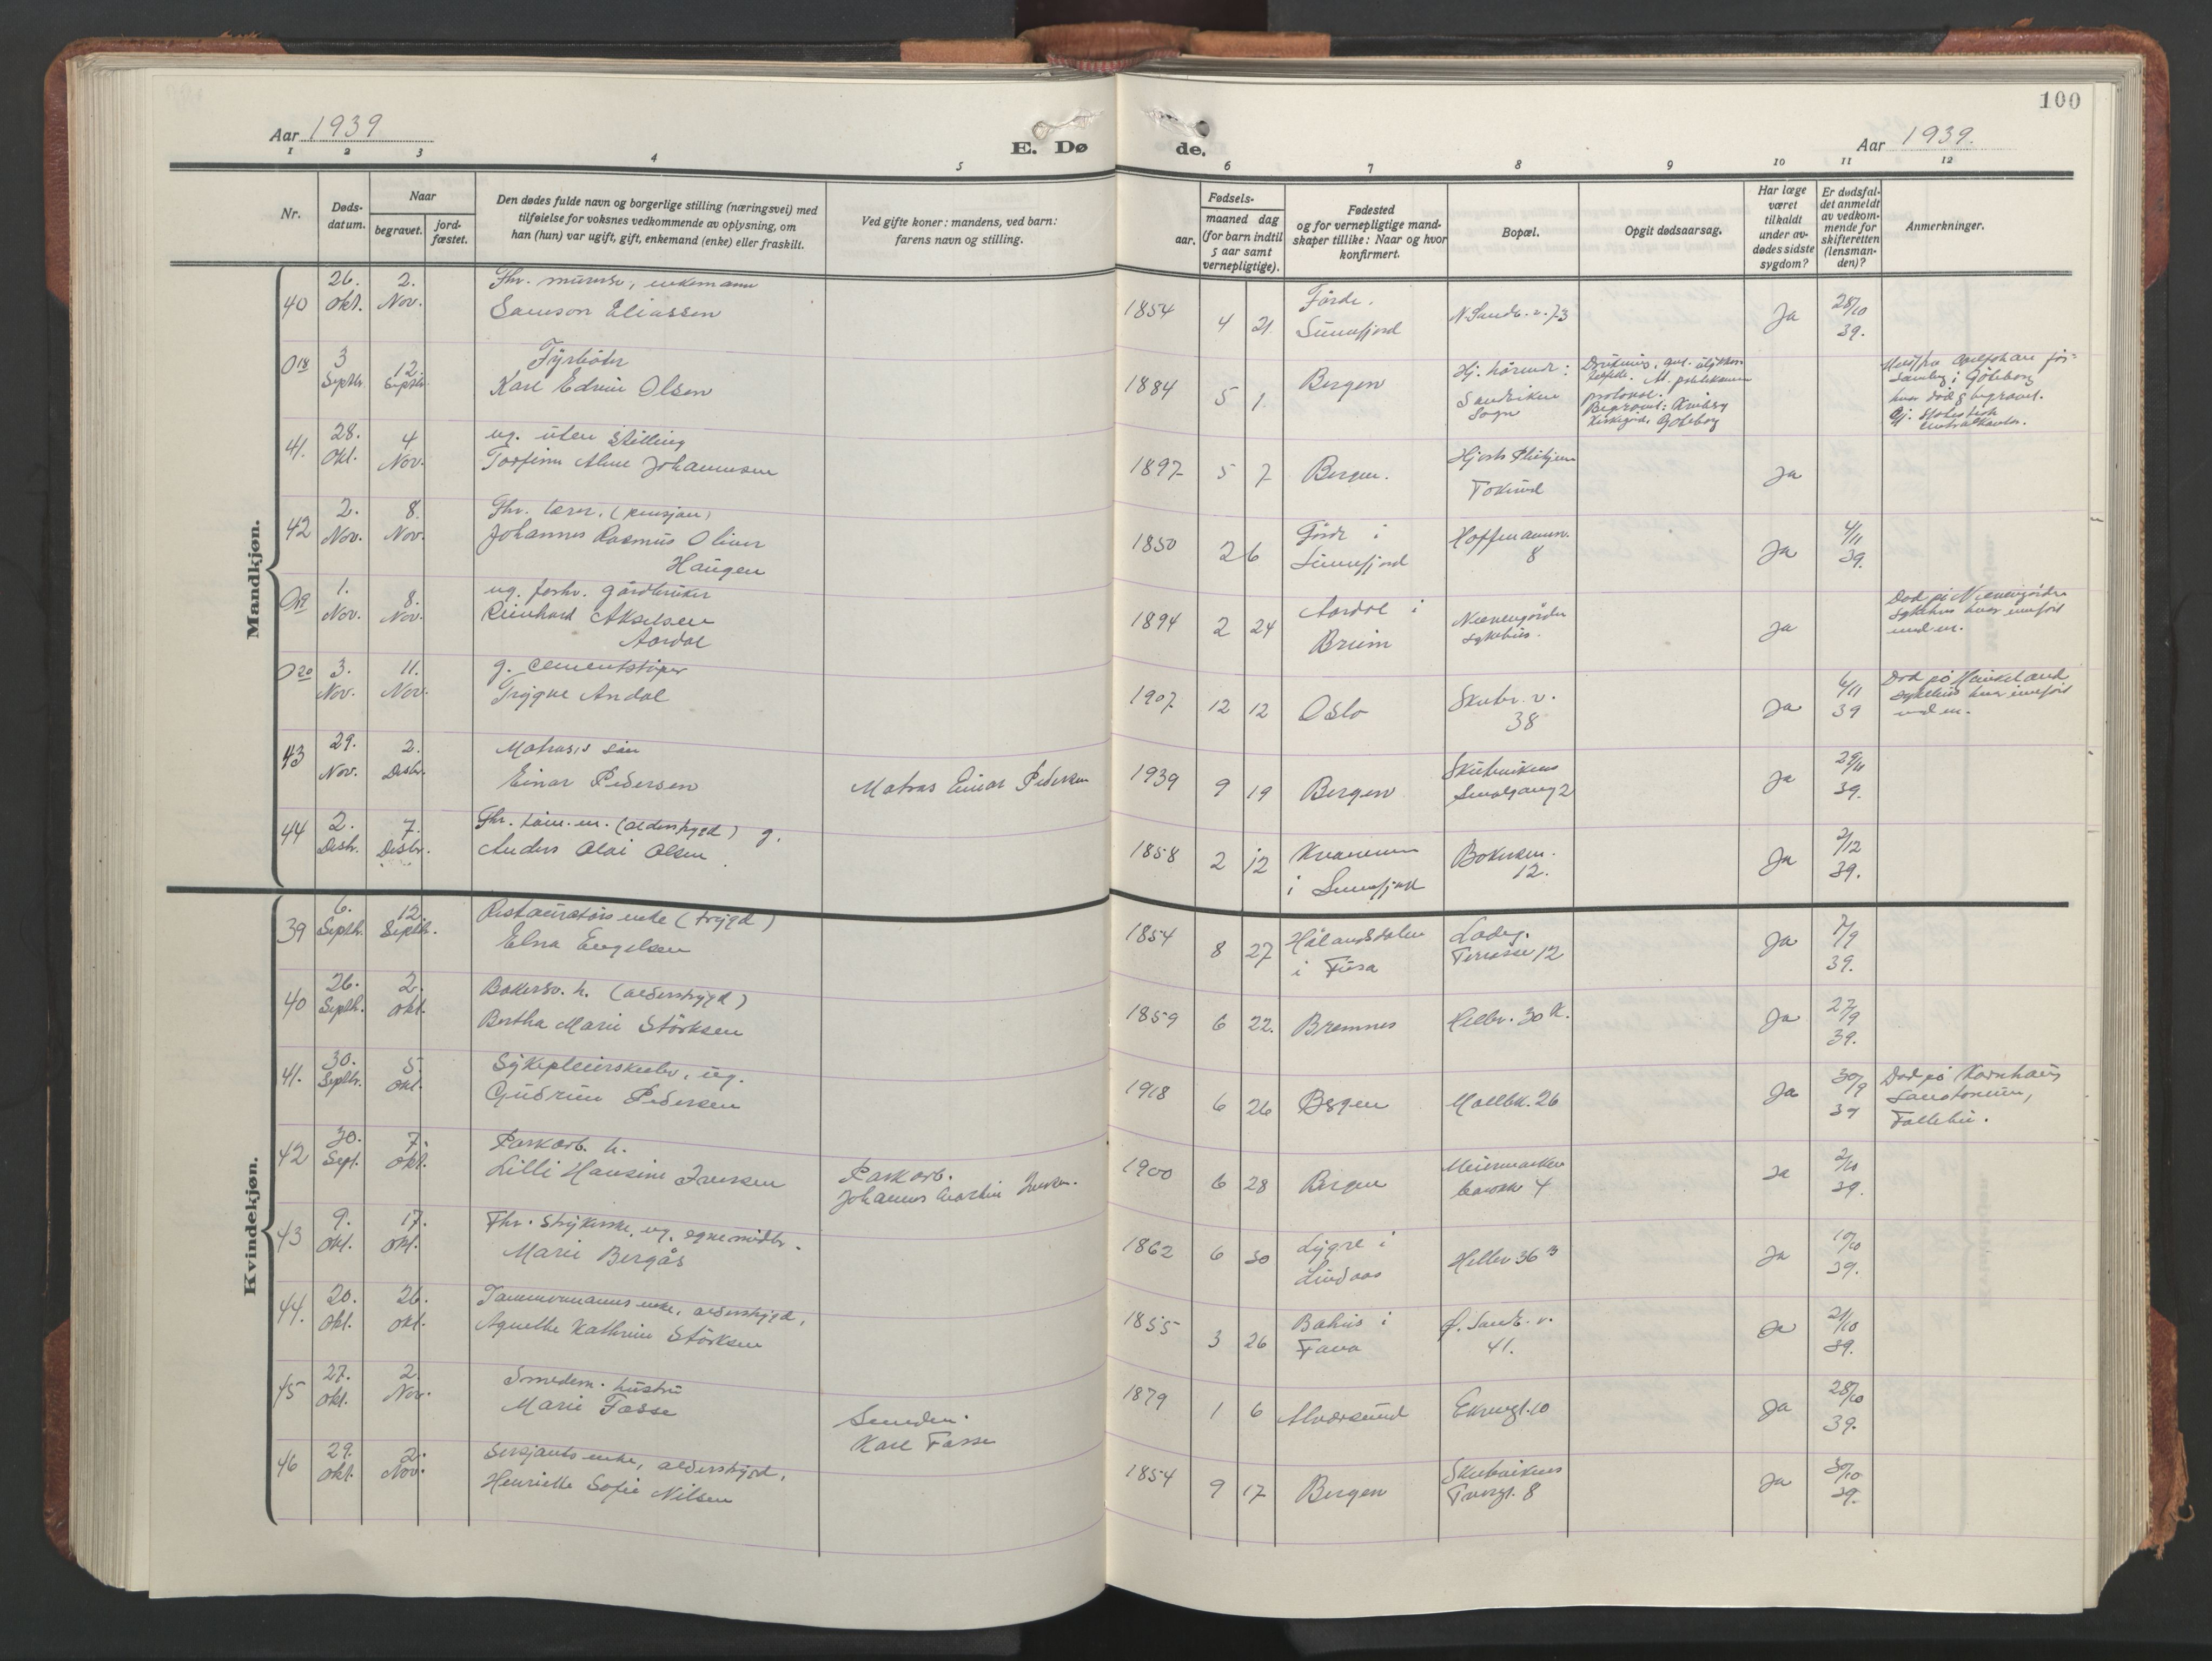 100
Aar 1939
E. Dø de.
Aar 1939.
1 2 3 4 5 6 7 8 9 10 11 12
Nr.
Døds-
datum.
Naar
begravet.
jord-
fæstet.
Den dødes fulde navn og borgerlige stilling (næringsvei) med
tilføielse for voksnes vedkommende av oplysning, om
han (hun) var ugift, gift, enkemand (enke) eller fraskilt.
Ved gifte koner: mandens, ved barn:
farens navn og stilling.
aar.
Fødsels-
maaned dag
(for barn indtil
5 aar samt
vernepligtige).
Fødested
og for vernepligtige mand-
skaper tillike: Naar og hvor
konfirmert.
Bopæl.
Opgit dødsaarsag.
Har læge
været
tilkaldt
under av-
dødes sidste
sygdom?
Er dødsfal-
det anmeldt
av vedkom-
mende for
skifteretten
(lensman-
den)?
Anmerkninger.
Mandkjøn.
40 26. Okt. 2. Nov.
Fhr. murersv, enkemann
Samson Eliassen
1854 4 21
Förde.
Sunnfjord
N. Sandv. v. 73
Ja
28/10
39.
O18 3 Septbr. 12. Septbr.
Fyrböter
Karl Edvin Olsen
1884 5 1.
Bergen
Hj. hörende:
Sandviken
Sogn
Drukning
protokol.
Begravet:
Kirkegård, Göteborg
Göteborg
hvor död & begravet.
41. 28. Okt. 4 Nov.
ug. uten stilling
Torfinn Alme Johannessen
1897 5 7
Bergen.
Ja
42 2. Nov. 8. Nov.
Fhr. lærer. (pensjon)
Johannes Rasmus Oliver
Haugen
1850 2 6
Förde i
Sunnfjord
Hoffmannsv.
8
Ja
4/11
39.
O19 1. Nov. 8. Nov.
ug. forhv. gårdbruker
Reinhard Akselsen
Aardal
1894 2 24
Aardal i
Breim
Neevengården
sykehus.
Ja
Död på Neevengården
sykehus hvor innfört
under.
O20 3. Nov. 11. Nov.
g. cementstöper
Trygve Andal
1907 12 12
Oslo
Skutev. v.
38
Ja
6/11
39
Död på Haukeland
sykehus hvor innfört
under.
43 29. Nov. 2. Desbr.
Matros's sön
Einar Pedersen
Matros Einar Pedersen
1939 9 19
Bergen
Skutevikens
Smalgang 2
Ja
29/11
39.
44 2. Desbr. 7. Desbr.
Fhr. töm. m. (alderstrygd) g.
Anders Olai Olsen.
1858 2 12
Kvammen
i Sunnfjord
12.
Ja
2/12
39.
Kvindekjøn.
39 6. Septbr. 12. Septbr.
Restauratörs enke (trygd)
Elna Engelsen
1854 8 27
Hålandsdalen
i Fusa
Ladeg.
Terrasse 12
Ja
7/9
39.
40 26. Septbr. 2. Okt.
Bakersv. h. (alderstrygd)
Bertha Marie Störksen
1859 6 22.
Bremnes
Hellev. 30 K.
Ja
27/9
39.
41. 30. Septbr. 5. Okt.
Sykepleierskeelev, ug.
Gudrun Pedersen
1918 6 26
Bergen
Møllbk. 26
Ja
30/9
39
Död på Kornhaug
Sanatorium,
Follebu.
42 30. Sept. 7. Okt.
Parkarb. h.
Lilli Hansine Iversen
Parkarb.
Johannes Martin Iversen.
1900 6 28
Bergen
Meiermarken
barakk 4
Ja
2/10
39.
43 9. Okt. 17. Okt.
Fhr. strykerske, ug. egne midler.
Marie Bergås
1862 6 30
Lygre i
Lindaas
Hellev 36 3
Ja
10/10
39.
44. 20. Okt. 26. Okt.
Tømmermanns enke, alderstrygd,
Agnethe Kathrine Störksen
1855 3 26
Bahus i
Fana
Ø. Sandv. v.
41.
Ja
21/10
39.
45 27. Okt. 2. Nov.
Smedem. hustru
Marie Fosse
Smedm.
Karl Fosse
1879 1 6
Alversund
Ekregt. 10
Ja
28/10
39.
46 29. Okt. 2. Nov.
Sersjants enke, alderstrygd,
Henriette Sofie Nilsen
1854 9 17
Bergen
Skutevikens
Tvergt. 8
Ja
30/10
39.